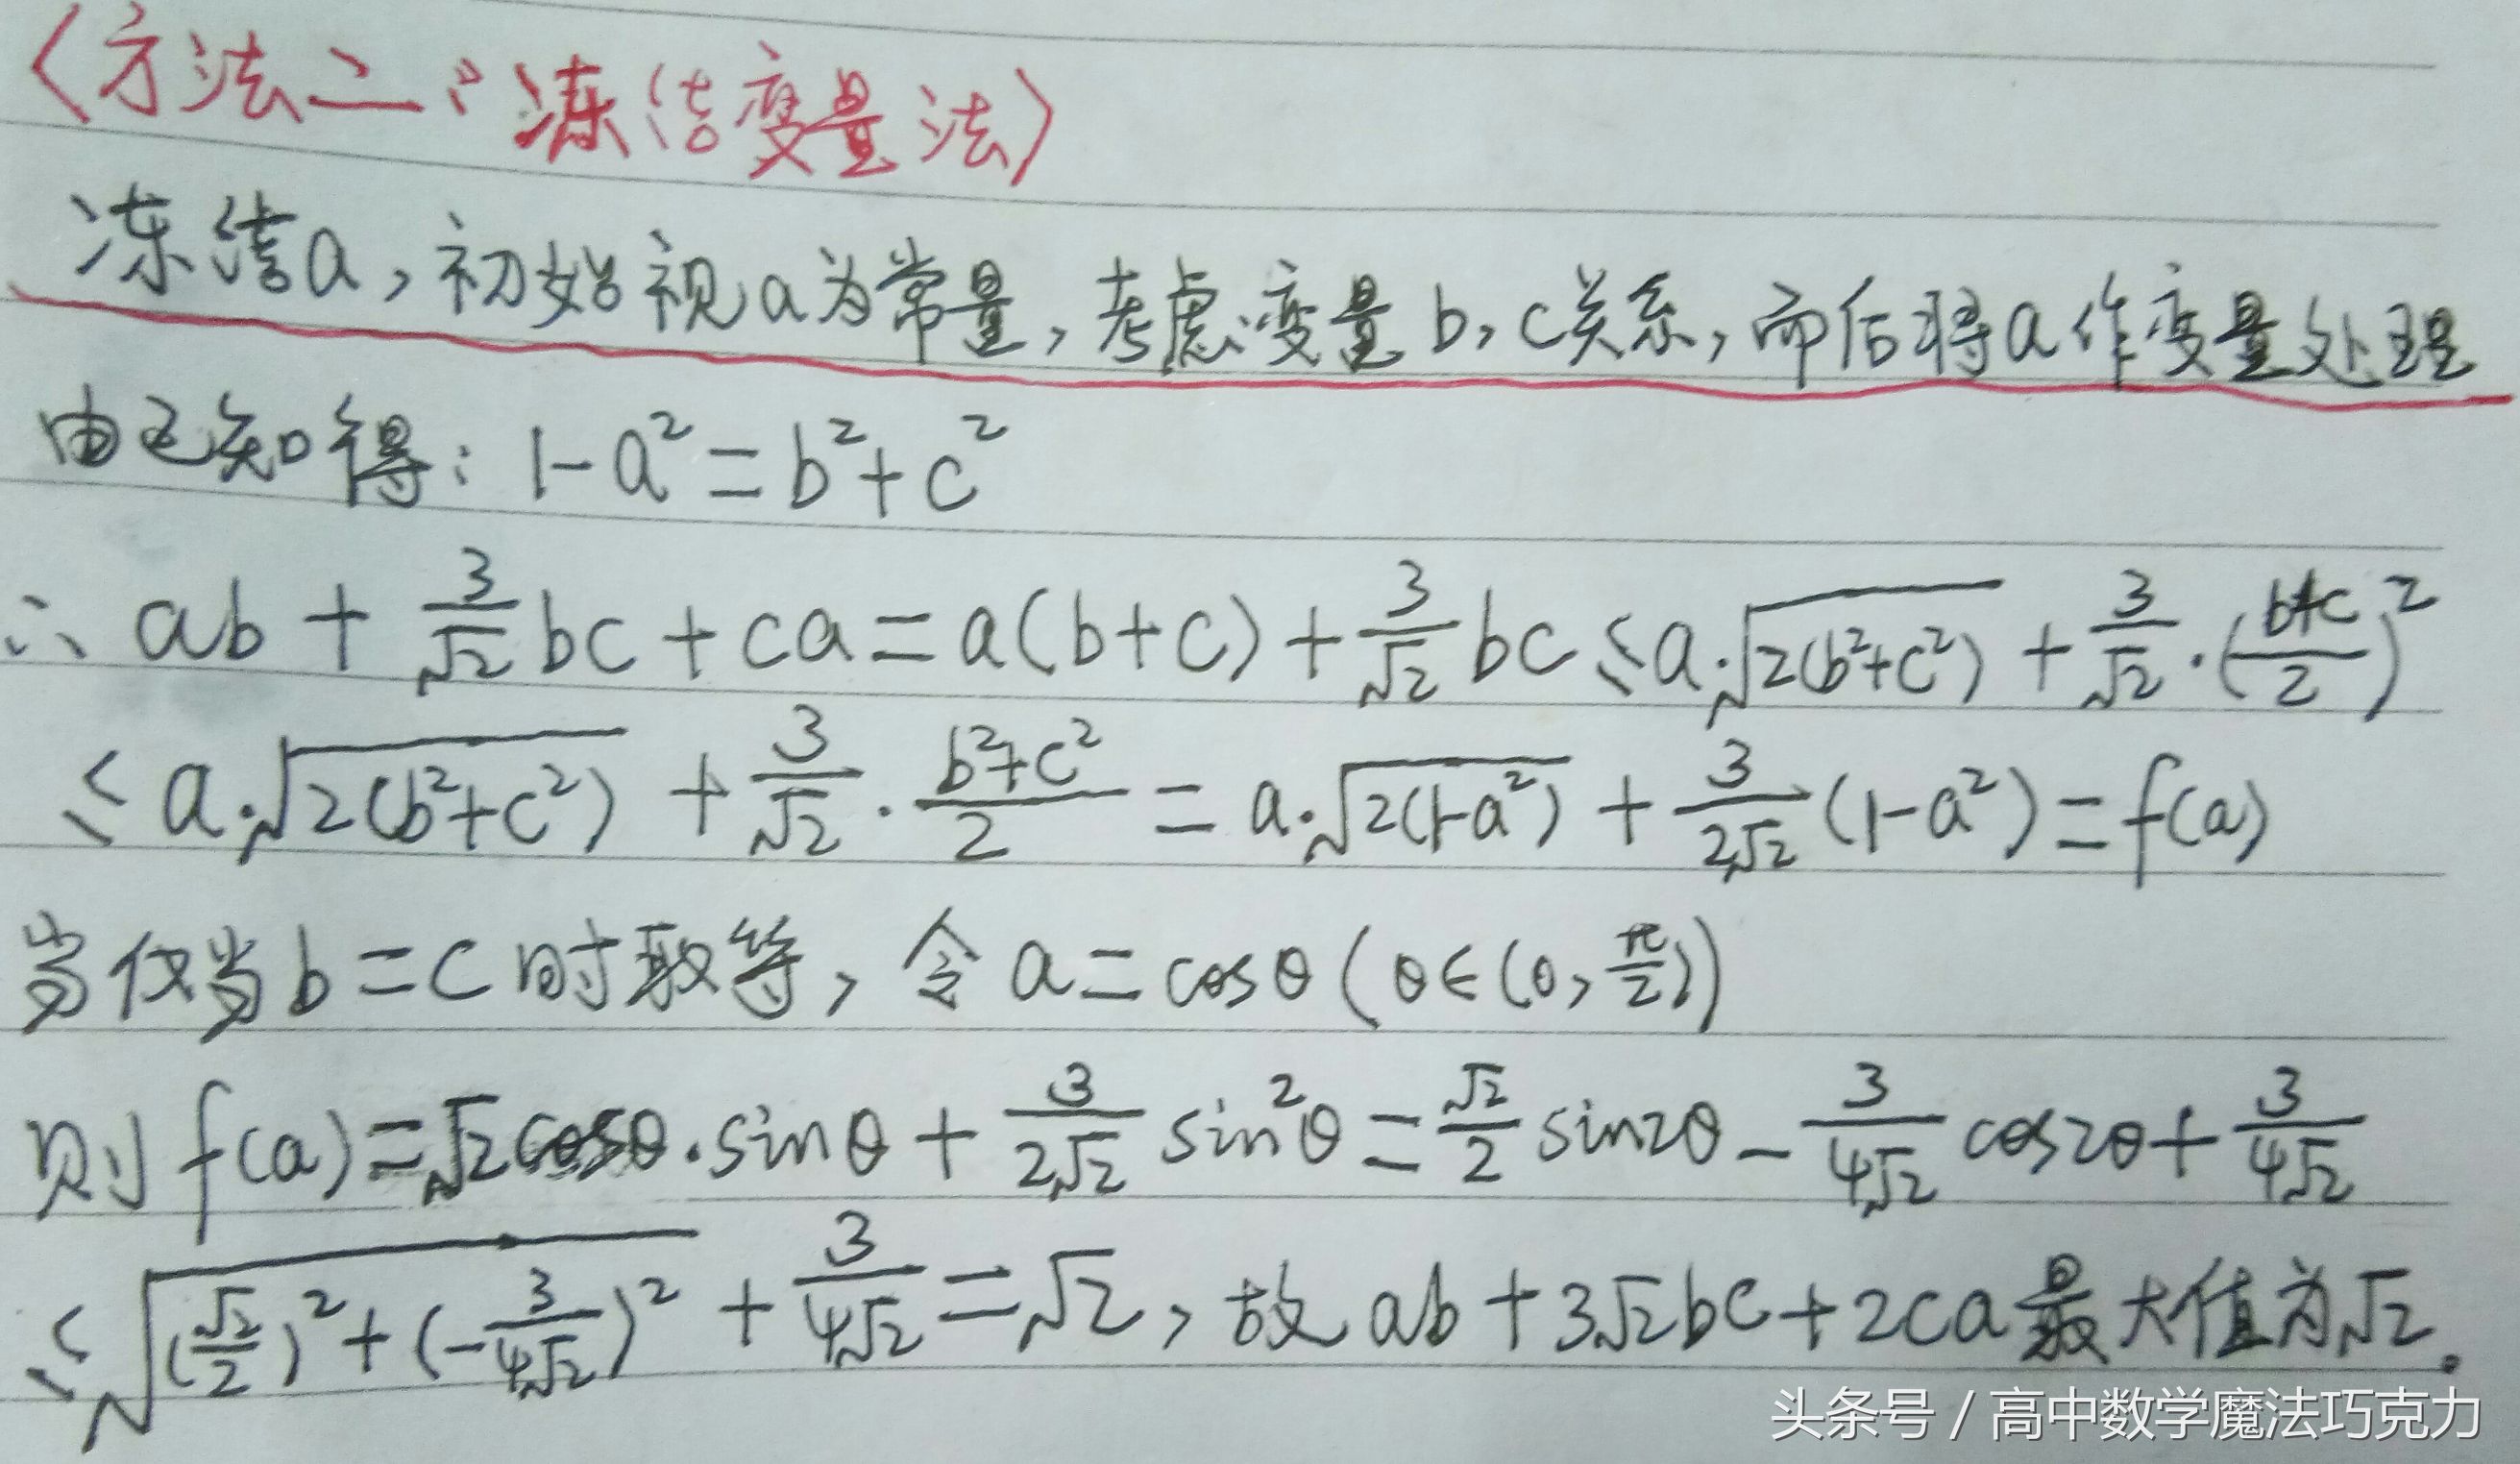 〈方法二：冻结变量法〉
冻结a，初始视a为常量，考虑变量b，c关系，而后将a作变量处理
由已知得：1-a²=b²+c²
∴ ab+\frac{3}{√2}bc+ca=a(b+c)+\frac{3}{√2}bc≤a·√{2(b²+c²)}+\frac{3}{√2}·(\frac{b+c}{2})²
≤a·√{2(b²+c²)}+\frac{3}{√2}·\frac{b²+c²}{2}=a·√{2(1-a²)}+\frac{3}{2√2}(1-a²)=f(a)
当仅当b=c时取等，令a=cosθ(θ∈(0,\frac{π}{2}))
则f(a)=√2cosθ·sinθ+\frac{3}{2√2}sin²θ=\frac{√2}{2}sin2θ-\frac{3}{4√2}cos2θ+\frac{3}{4√2}
≤√{(\frac{√2}{2})²+(-\frac{3}{4√2})²}+\frac{3}{4√2}=√2，故ab+3√2bc+2ca最大值为√2。
头条号 / 高中数学魔法巧克力